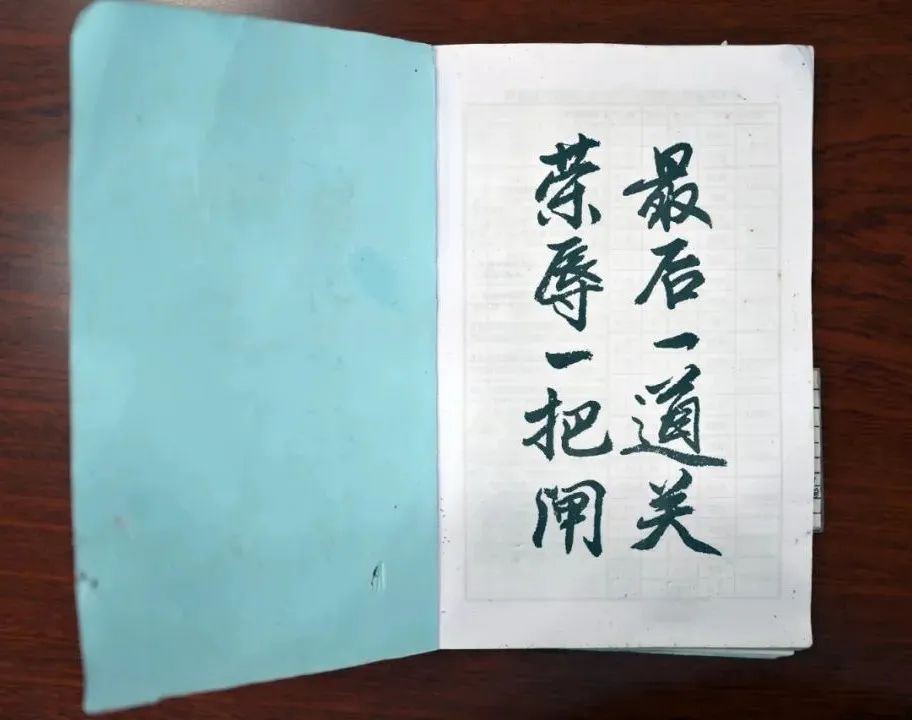 最后一道关
荣辱一把闸